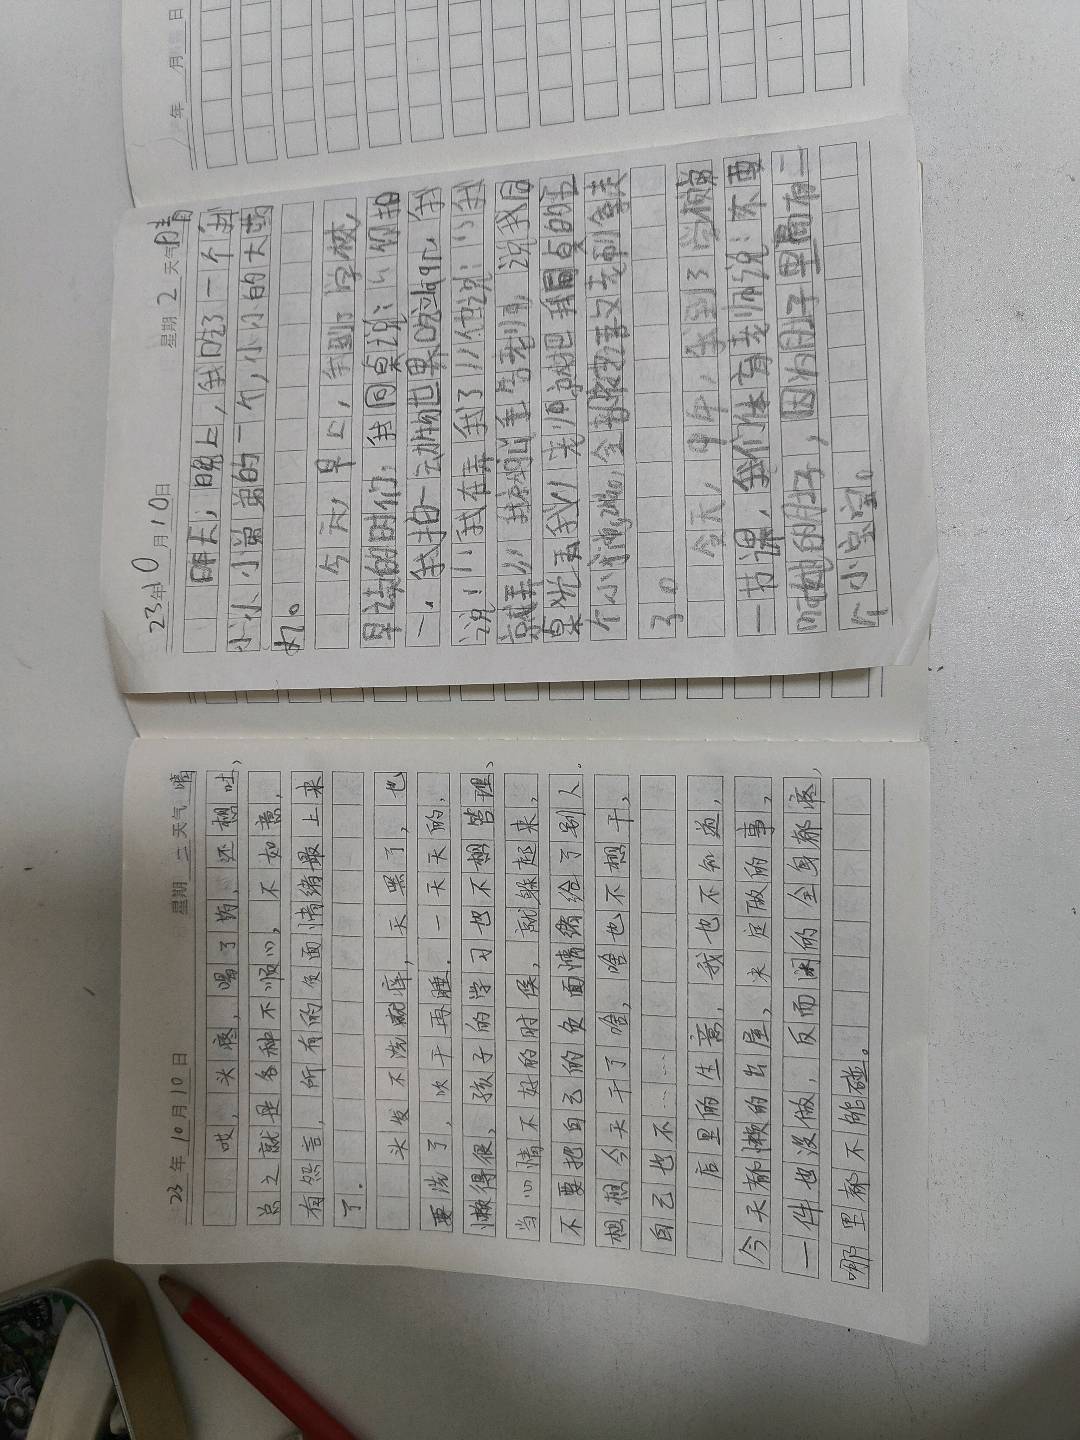 23年10月10日 星期二 天气 晴
哎，头疼，喝了药，还想吐，
总之就是各种不顺心，不如意，
有怨言，所有的负面情绪最上来
了.
头发不洗就痒，天黑了，也
要洗了，吹干再睡.一天天的，
懒得很、孩子的学习也不想管理、
当心情不好的时候，就躲起来，
不要把自己的负面情绪给了别人.
想想今天干了啥，啥也不想干，
自己也不……
店里的生意，我也不知道，
今天都懒的出屋，决定做的事，
一件也没做，反而闲的全身都疼，
哪里都不能碰。
23年 0月10日 星期2 天气晴
昨天，晚上，我吃了一个
小小小 的一个，小小的大药
丸。
今天，早上，我到了学校，
早读的时们，我同桌说：“你拍
一，我拍一动物世界吃 ，我
说！“我在弄我了”他说：“我
就弄” 告老师，说我同
桌 老师就把我同桌的
个小 全 老师
了。
今天，中午，我到了学校
一节课，我们体育老师说：不要
的肚子，因为肚子里面有二
个小宝宝。
年 月 日